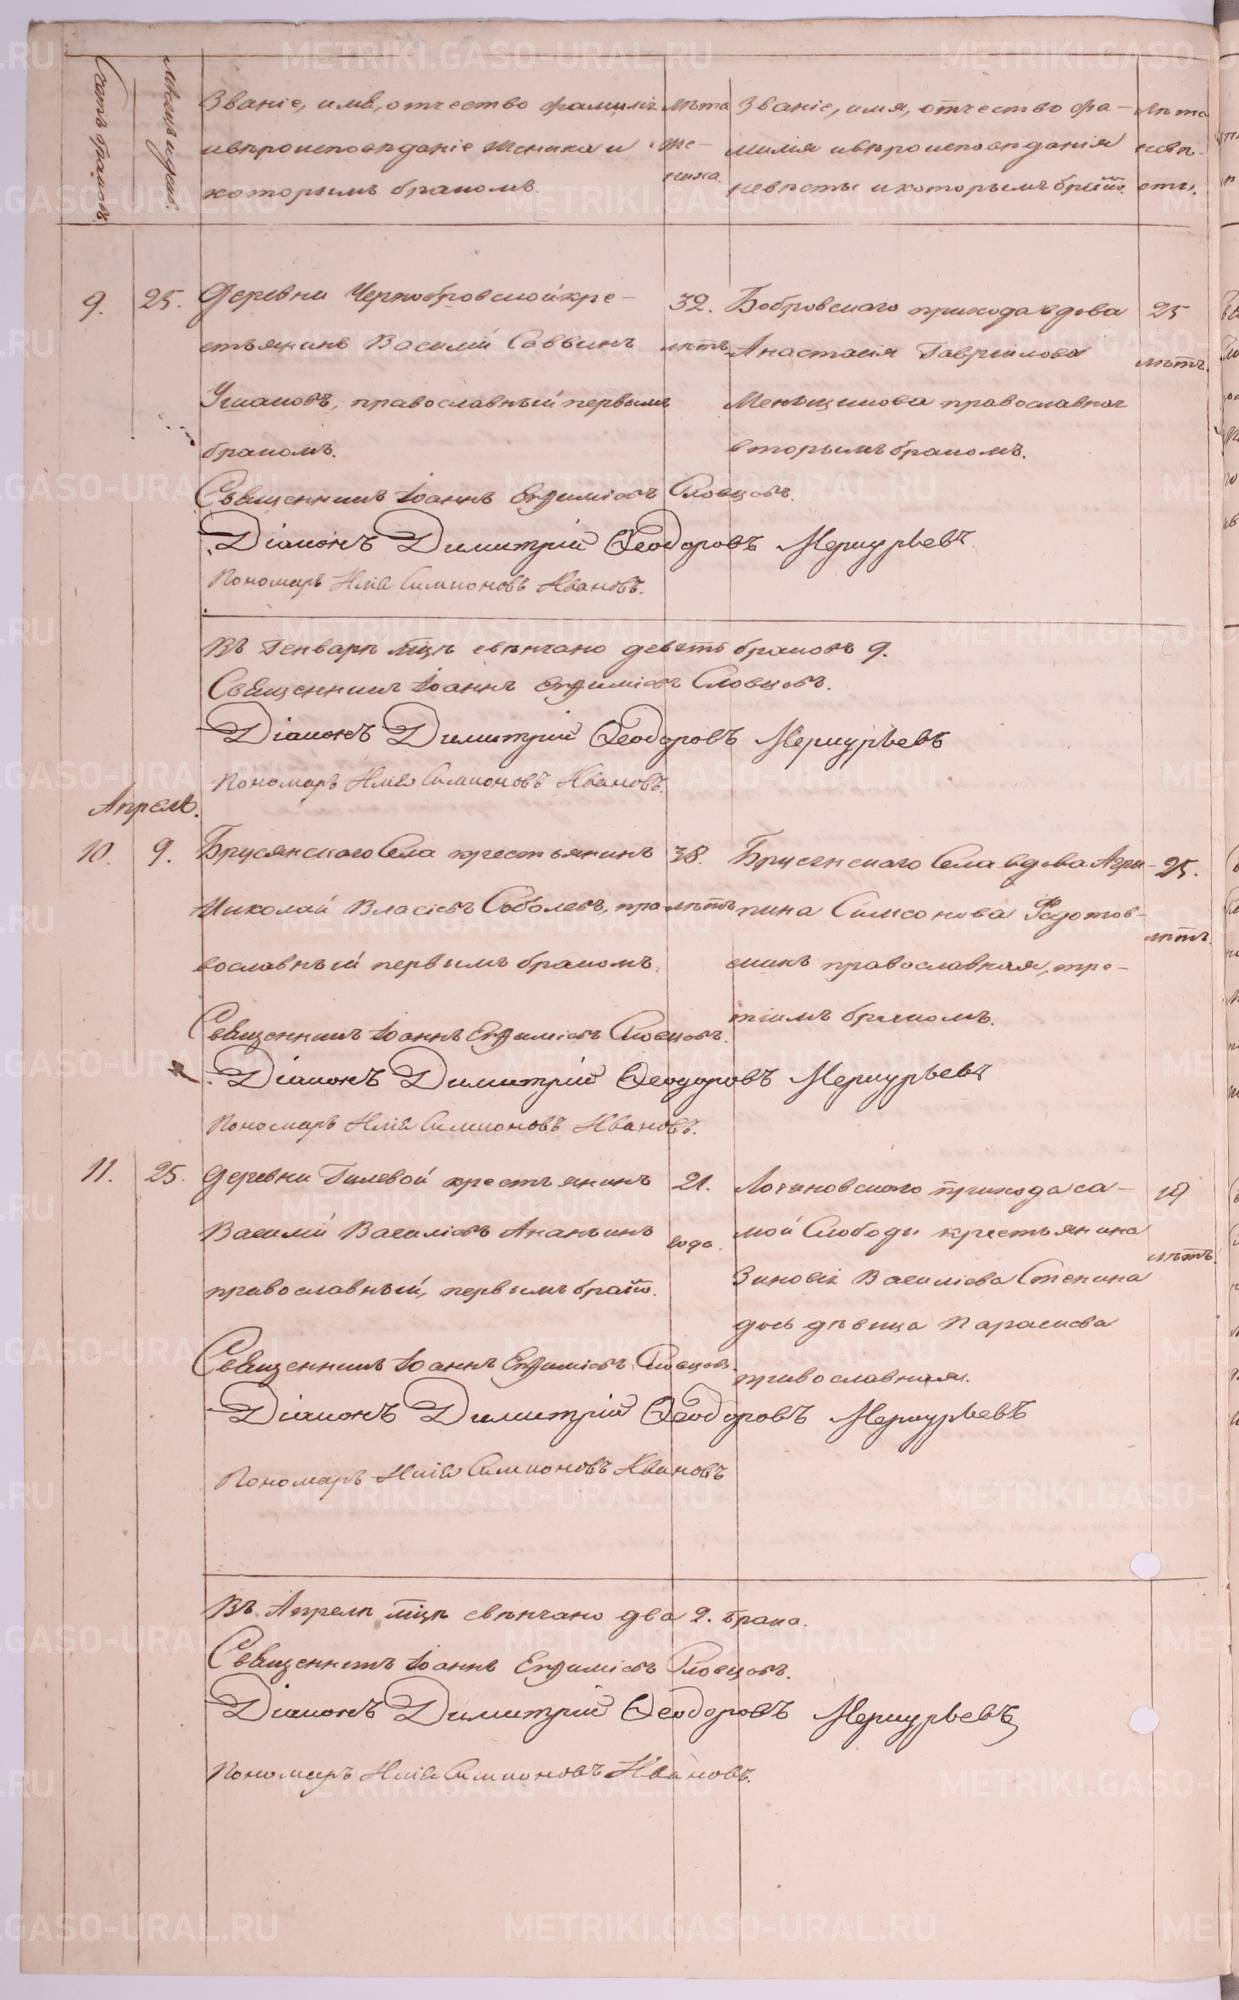 Счетъ браковъ.
Мѣсяцъ и день.
Званіе, имя, отчество фамилія
и вѣроисповѣданіе жениха и
которымъ бракомъ.
Лѣта
же-
ниха.
Званіе, имя, отчество фа-
милія и вѣроисповѣданія
невѣсты и которымъ бракомъ.
Лѣта
невѣ-
сты.
9.
25.
Деревни Чернобровской кре-
стьянинъ Василій Саввинъ
Ушаковъ, православный первымъ
бракомъ.
32.
лѣтъ
Бобровскаго прихода вдова
Анастасія Гавріилова
Меньщикова православная
вторымъ бракомъ.
25
лѣтъ.
Священникъ Іоаннъ Евфиміевъ Словцовъ.
Діаконъ Димитрій Ѳеодоровъ Меркурьевъ
Пономарь Илія Симионовъ Ивановъ.
Въ Генварѣ мцѣ свѣнчано девять браковъ 9.
Священникъ Іоаннъ Евфиміевъ Словцовъ.
Діаконъ Димитрій Ѳеодоровъ Меркурьевъ
Пономарь Илія Симионовъ Ивановъ.
Апрель.
10.
9.
Брусянского Села крестьянинъ
Николай Власіевъ Соболевъ, пра-
вославный первымъ бракомъ.
38.
лѣтъ
Брусянского Села вдова Агри-
пина Симеонова Федотов-
скихъ православная, тре-
тіимъ бракомъ.
25.
лѣтъ.
Священникъ Іоаннъ Евфиміевъ Словцовъ.
Діаконъ Димитрій Ѳеодоровъ Меркурьевъ
Пономарь Илія Симионовъ Ивановъ.
11.
25.
Деревни Гилевой крестьянинъ
Василій Василіевъ Ананьинъ
православный, первымъ бракомъ.
21.
года.
Логиновского прихода са-
мой Слободы крестьянина
Зиновія Василіева Стенина
дочь дѣвица Параскева
православная.
19
лѣтъ.
Священникъ Іоаннъ Евфиміевъ Словцовъ.
Діаконъ Димитрій Ѳеодоровъ Меркурьевъ
Пономарь Илія Симионовъ Ивановъ
Въ Апрелѣ мцѣ свѣнчано два 2. брака.
Священникъ Іоаннъ Евфиміевъ Словцовъ.
Діаконъ Димитрій Ѳеодоровъ Меркурьевъ
Пономарь Илія Симионовъ Ивановъ.
METRIKI.GASO-URAL.RU